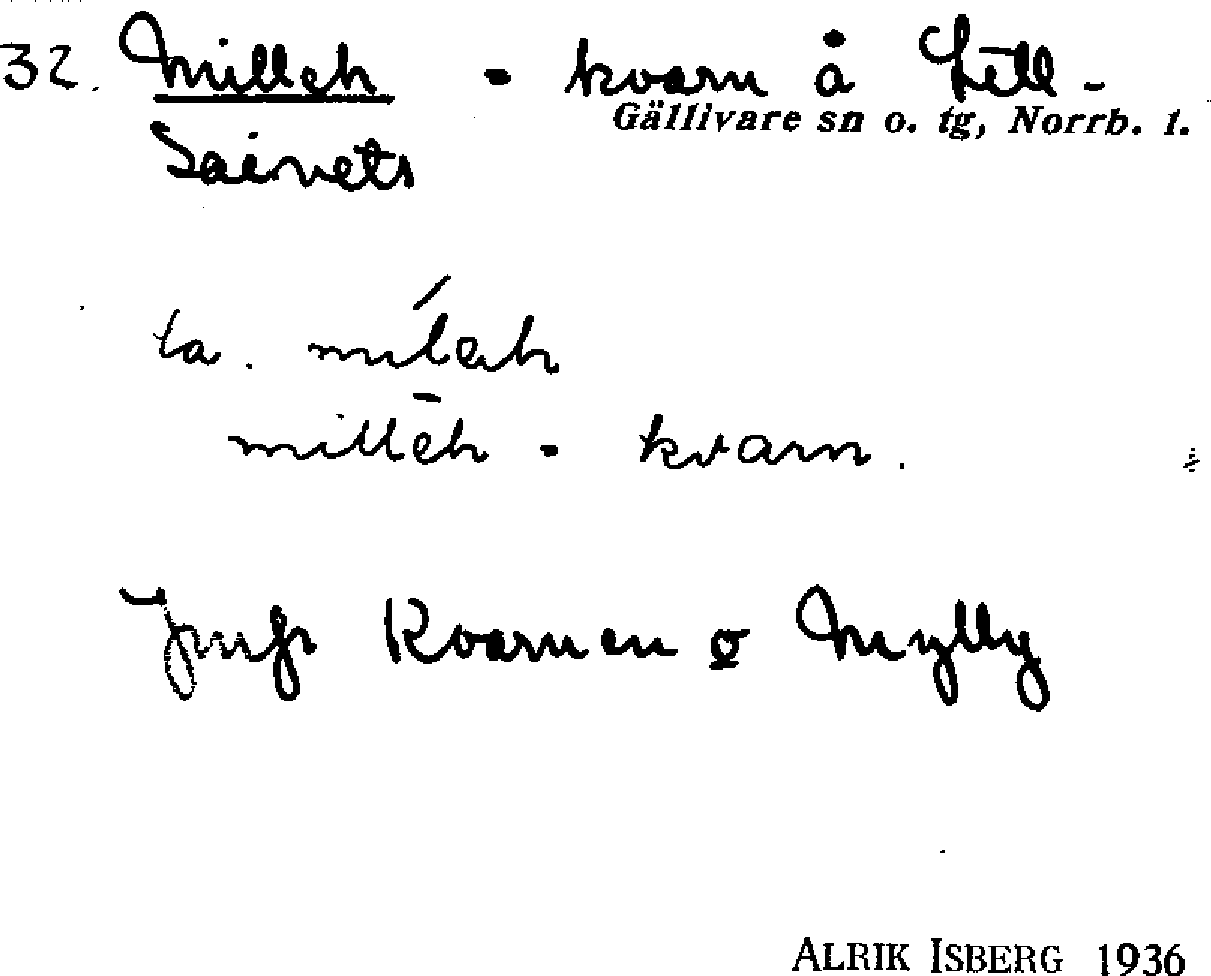 32. Milleh - kvarn å Lill-
Gällivare sn o. tg, Norrb. l.
Saivets
la. milɑh
millēh - kvarn.
Jmfr Kvarnen o Mylly
ALRIK ISBERG 1936